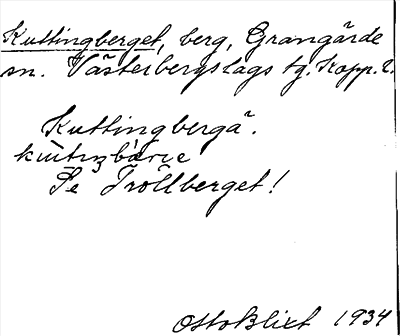 Kuttingberget, berg, Grangärde
sn. Västerbergslags tg. Kopp. l.
Kuttingbergä.
Se Trollberget!
Otto Blixt 1934